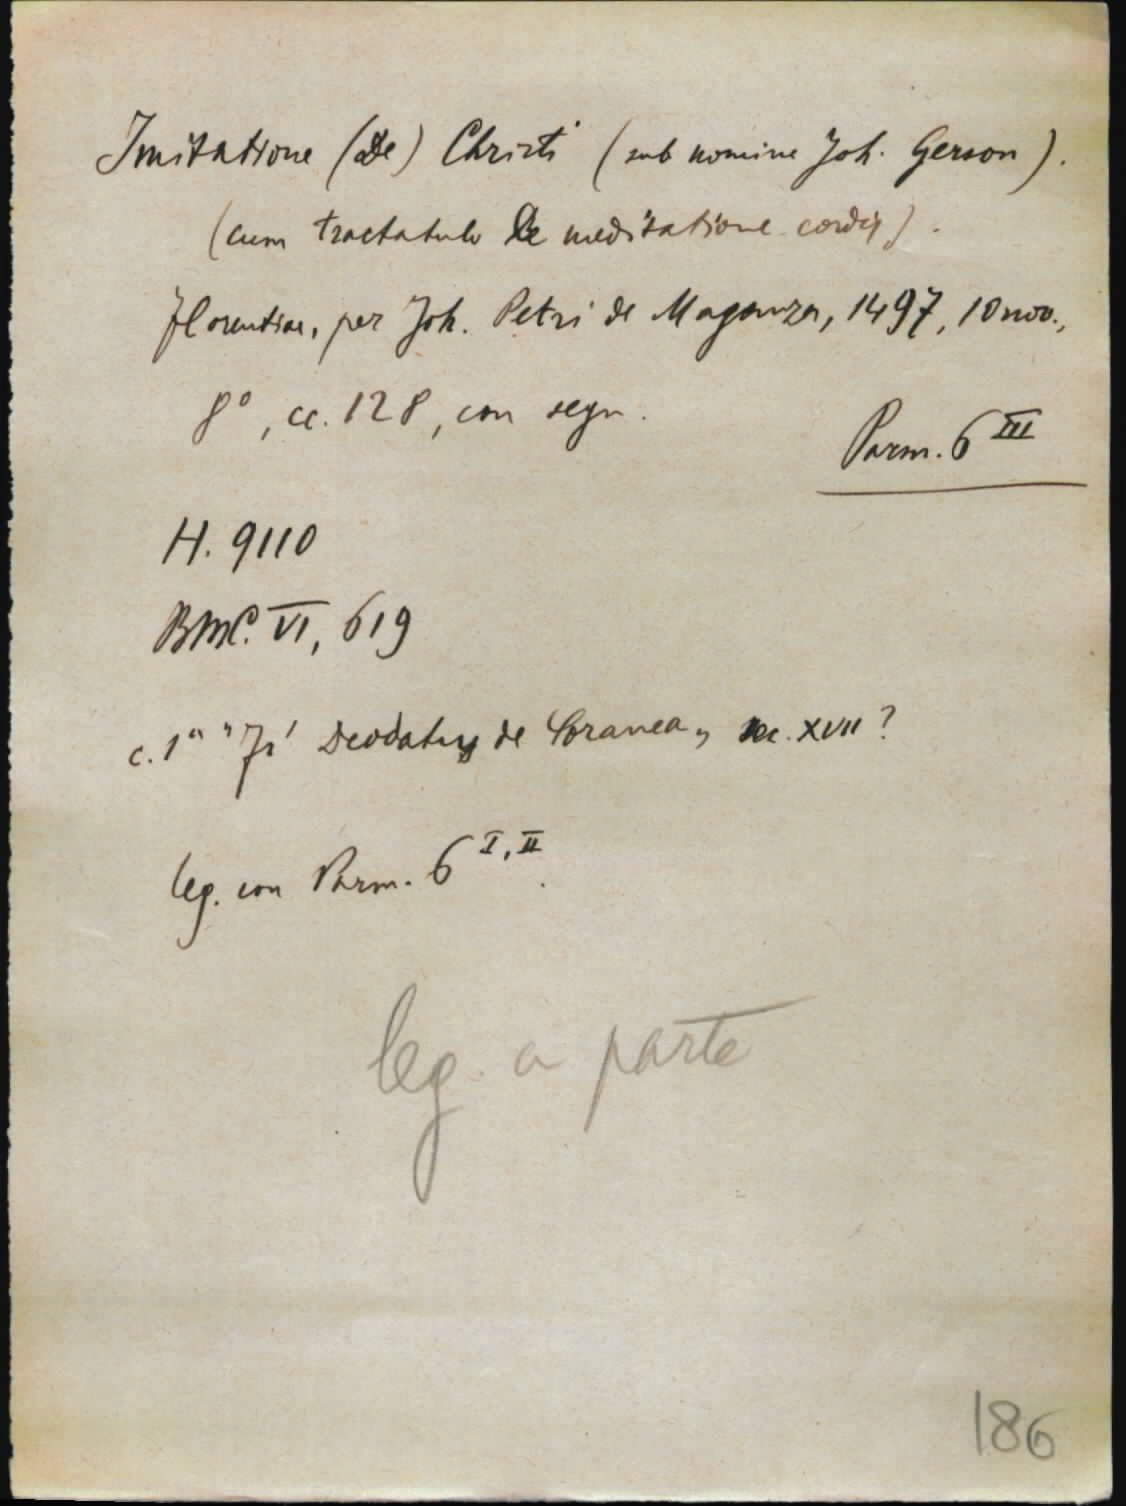 Imitatione (De) Christi (sub nomine Joh. Gerson).
(cum tractatulo De meditatione cordis).
Florentiae, per Joh. Petri de Maganza, 1497, 10 nov.,
8°, cc. 128, con segn.
Parm. 6 III
H. 9110
BMC. VI, 619
c. 1ª "Fr' Deodatus de sec. XVII?
leg. con Parm. 6 I, II.
leg. a parte
186